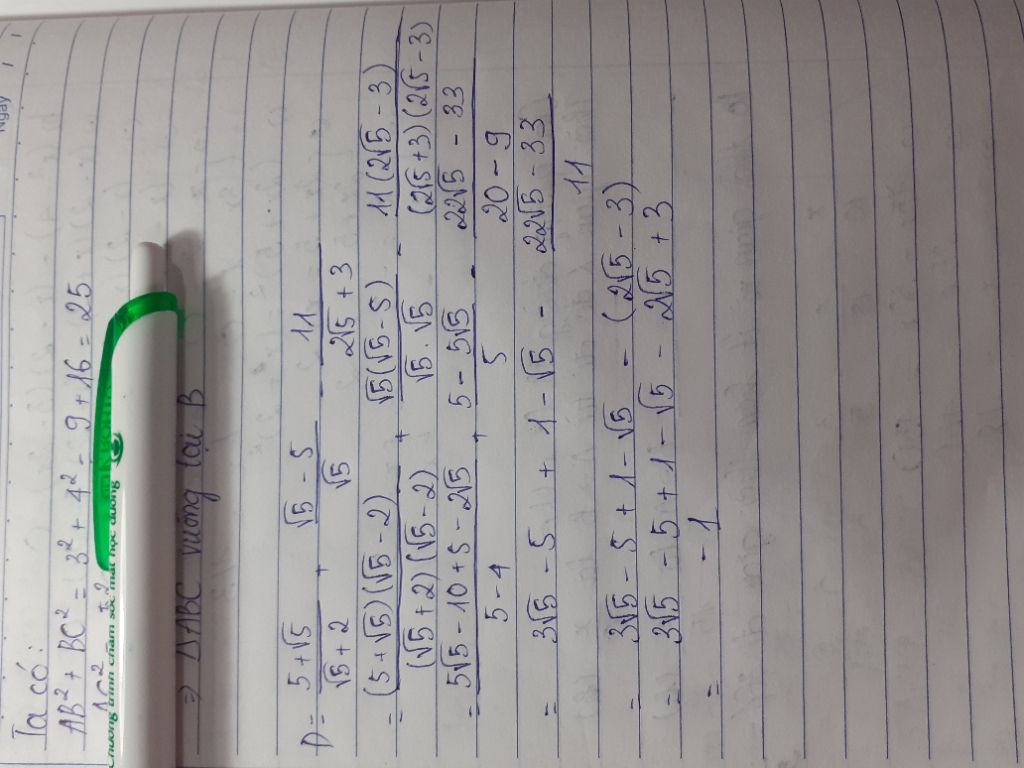 Ngày
Ta có:
AB² + BC² = 3² + 4² = 9 + 16 = 25
AC²
Chương trình chăm sóc mắt học đường
⇒ ΔABC vuông tại B
D = (5 + √5)/(√5 + 2) + (√5 - 5)/√5 - 11/(2√5 + 3)
= ((5 + √5)(√5 - 2))/((√5 + 2)(√5 - 2)) + (√5(√5 - 5))/(√5 . √5) - (11(2√5 - 3))/((2√5 + 3)(2√5 - 3))
= (5√5 - 10 + 5 - 2√5)/(5 - 4) + (5 - 5√5)/5 - (22√5 - 33)/(20 - 9)
= 3√5 - 5 + 1 - √5 - (22√5 - 33)/11
= 3√5 - 5 + 1 - √5 - (2√5 - 3)
= 3√5 - 5 + 1 - √5 - 2√5 + 3
= - 1